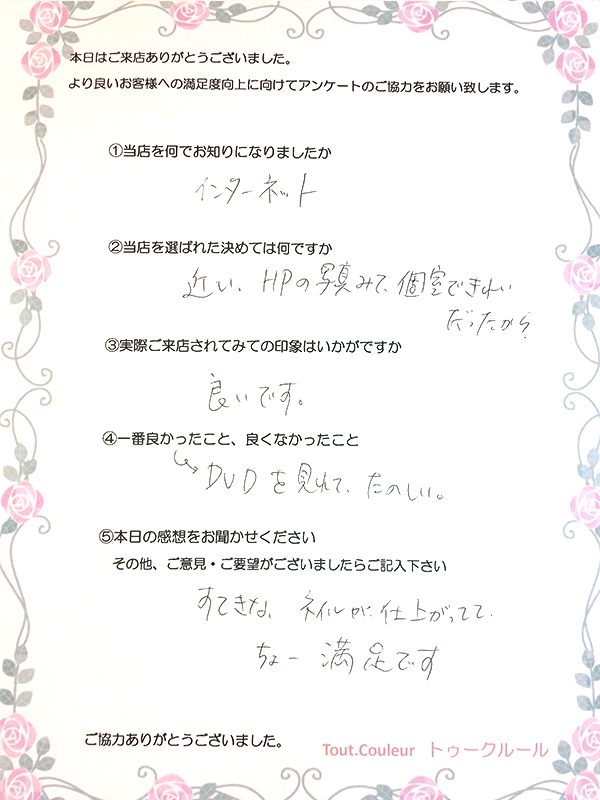 本日はご来店ありがとうございました。
より良いお客様への満足度向上に向けてアンケートのご協力をお願い致します。
①当店を何でお知りになりましたか
インターネット
②当店を選ばれた決めては何ですか
近い、HPの写真みて、個室できれい
だったから
③実際ご来店されてみての印象はいかがですか
良いです。
④一番良かったこと、良くなかったこと
DVDを見れて、たのしい。
⑤本日の感想をお聞かせください
その他、ご意見・ご要望がございましたらご記入下さい
すてきな、ネイルが仕上がってて、
ちょー満足です
ご協力ありがとうございました。
Tout.Couleur トゥークルール